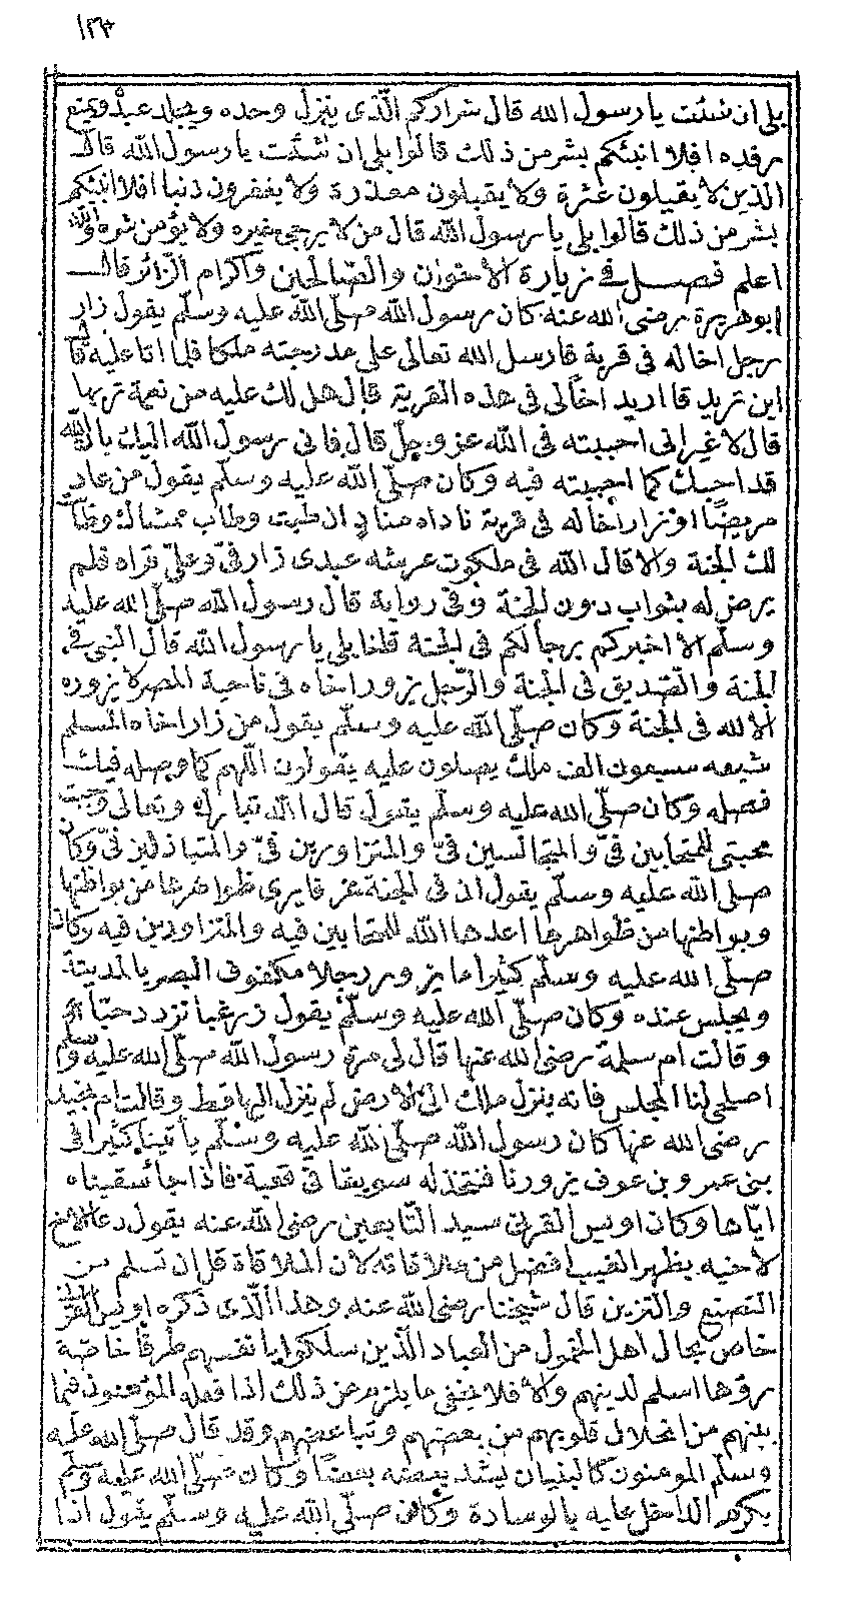 ١٢٣
بلى ان شئت يا رسول الله قال شراركم الّذى ينزل وحده ويجلد عبده ويمنع
رفده افلا انبئكم بشر من ذلك قالوا بلى ان شئت يا رسول الله قال
الذين لا يقيلون عثرة ولا يقبلون معذرة ولا يغفرون ذنبا افلا انبئكم
بشر من ذلك قالوا بلى يا رسول الله قال من لا يرجى خيره ولا يؤمن شره والله
اعلم فصل فى زيارة الاخوان والصّالحين واكرام الزّائر قال
ابو هريرة رضى الله عنه كان رسول الله صلّى الله عليه وسلّم يقول زار
رجل اخا له فى قرية فارسل الله تعالى على مدرجته ملكا فلما اتا عليه قال
اين تريد قا اريد اخاً لى فى هذه القرية قال هل لك عليه من نعمة تربها
قال لا غير انى احببته فى الله عز وجلّ قال فانى رسول الله اليك بان الله
قد احبك كما احببته فيه وكان صلّى الله عليه وسلّم يقول من عاد
مريضًا او زار اخا له فى قرية ناداه مناد ان طبت وطاب ممشاك وطاب
لك الجنة والا قال الله فى ملكوت عرشه عبدى زار فىّ وعلىّ قراه فلم
يرض له بثواب دون الجنة وفى رواية قال رسول الله صلّى الله عليه
وسلّم الا اخبركم برجالكم فى الجنة قلنا بلى يا رسول الله قال النبى فى
الجنة والصّديق فى الجنة والرّجل يزور اخاه فى ناحية المصر لا يزوره
الا لله فى الجنة وكان صلّى الله عليه وسلّم يقول من زار اخاه المسلم
شيعه سبعون الف ملك يصلون عليه يقولون اللّهم كما وصله فيك
فصله وكان صلّى الله عليه وسلّم يقول قال الله تبارك وتعالى وجبت
محبتى للمتحابين فىّ والمتجالسين فىّ والمتزاورين فىّ والمتباذلين فىّ وكان
صلى الله عليه وسلّم يقول ان فى الجنة غرفا يرى ظواهرها من بواطنها
وبواطنها من ظواهرها اعدها الله للمتحابين فيه والمتزاورين فيه وكان
صلّى الله عليه وسلّم كثيرا ما يزور رجلا مكفوف البصر بالمدينة
ويجلس عنده وكان صلّى الله عليه وسلّم يقول زر غبا تزدد حبّا
وقالت ام سلمة رضى الله عنها قال لى مرة رسول الله صلّى الله عليه وسلم
اصلحى لنا المجلس فانه ينزل ملك الى الارض لم ينزل اليها قط وقالت ام بجيد
رضى الله عنها كان رسول الله صلّى الله عليه وسلّم يأتينا كثيرا فى
بنى عمرو بن عوف يزورنا فنتخذ له سويقا فى قعبة فاذا جا سقيناه
ايّاها وكان اويس القرنى سيد التّابعين رضى الله عنه يقول دعا الاخ
لاخيه بظهر الغيب افضل من ملاقاته لان الملاقاة قل ان تسلم من
التصنع والتزين قال شيخنا رضى الله عنه وهذا الّذى ذكره اويس القرنى
خاص بحال اهل الخمول من العباد الّذين سلكوا بانفسهم طرقًا خاصّة
رؤها اسلم لدينهم والا فلا يخفى ما يلزم من ذلك اذا فعله المؤمنون فيما
بينهم من انحلال قلوبهم من بعضهم وتباعضهم وقد قال صلّى الله عليه
وسلّم المومنون كالبنيان يشد بعضه بعضًا وكان صلّى الله عليه وسلّم
يكرم الداخل عليه بالوسادة وكان صلّى الله عليه وسلّم يقول اذا